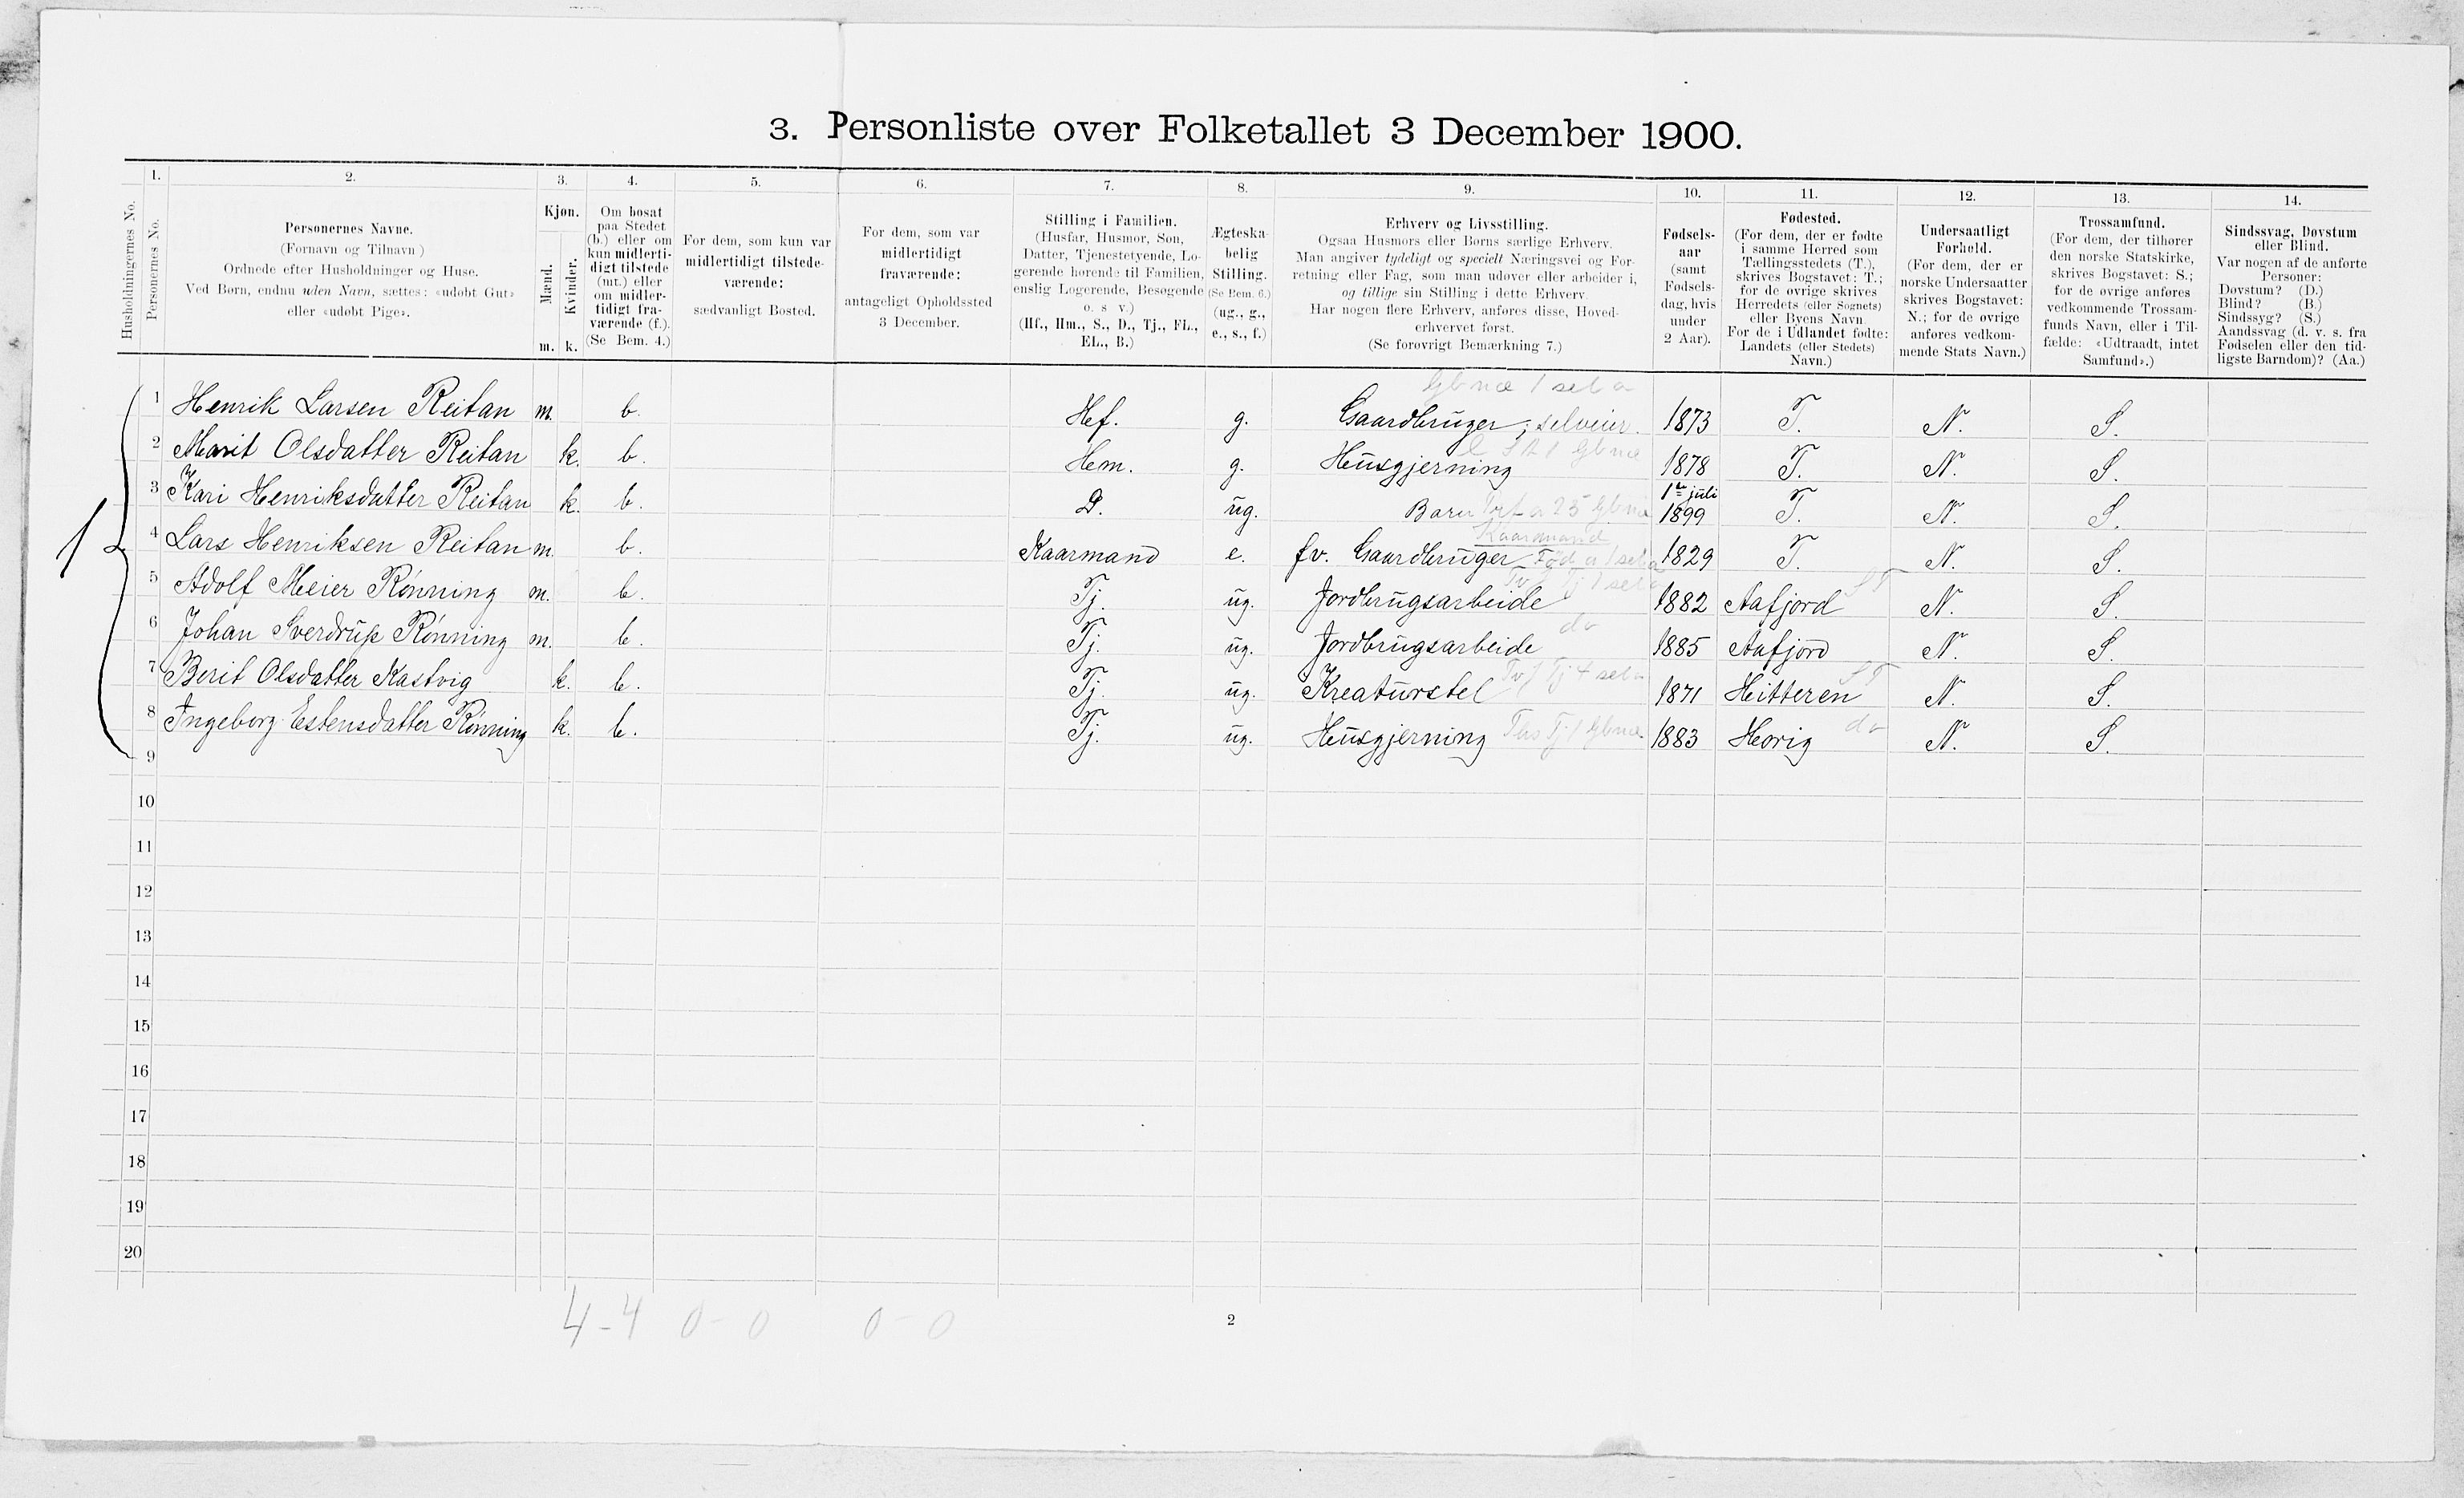 3. Personliste over Folketallet 3 December 1900.
1. 2. 3. 4. 5. 6. 7. 8. 9. 10. 11. 12. 13. 14.
Husholdningernes No.
Personernes No.
Personernes Navne.
(Fornavn og Tilnavn)
Ordnede efter Husholdninger og Huse.
Ved Børn, endnu uden Navn, sættes: «udøbt Gut»
eller «udøbt Pige».
Kjøn.
Mænd.
Kvinder.
m. k.
Om bosat
paa Stedet
(b.) eller om
kun midlerti-
digt tilstede
(mt.) eller
om midler-
tidigt fra-
værende (f.).
(Se Bem. 4.)
For dem, som kun var
midlertidigt tilstede-
værende:
sædvanligt Bosted.
For dem, som var
midlertidigt
fraværende:
antageligt Opholdssted
3 December.
Stilling i Familien.
(Husfar, Husmor, Søn,
Datter, Tjenestetyende, Lo-
gerende hørende til Familien,
enslig Logerende, Besøgende
o. s. v.)
(Hf., Hm., S., D., Tj., FL.,
EL., B.)
Ægteska-
belig
Stilling.
(Se Bem. 6.)
(ug., g.,
e., s., f.)
Erhverv og Livsstilling.
Ogsaa Husmors eller Børns særlige Erhverv.
Man angiver tydeligt og specielt Næringsvei og For-
retning eller Fag, som man udøver eller arbeider i,
og tillige sin Stilling i dette Erhverv.
Har nogen flere Erhverv, anføres disse, Hoved-
erhvervet først.
(Se forøvrigt Bemærkning 7.)
Fødsels-
aar
(samt
Fødsels-
dag, hvis
under
2 Aar).
Fødested.
(For dem, der er fødte
i samme Herred som
Tællingsstedets (T.),
skrives Bogstavet: T.;
for de øvrige skrives
Herredets (eller Sognets)
eller Byens Navn.
For de i Udlandet fødte:
Landets (eller Stedets)
Navn.)
Undersaatligt
Forhold.
(For dem, der er
norske Undersaatter
skrives Bogstavet:
N.; for de øvrige
anføres vedkom-
mende Stats Navn.)
Trossamfund.
(For dem, der tilhører
den norske Statskirke,
skrives Bogstavet: S.;
for de øvrige anføres
vedkommende Trossam-
funds Navn, eller i Til-
fælde: «Udtraadt, intet
Samfund».)
Sindssvag, Døvstum
eller Blind.
Var nogen af de anførte
Personer:
Døvstum? (D.)
Blind? (B.)
Sindssyg? (S.)
Aandssvag (d. v. s. fra
Fødselen eller den tid-
ligste Barndom)? (Aa.)
1
1 Henrik Larsen Reitan m. b. Hef. g. Gaardbruger, selveier. 1873 T. N. S.
2 Marit Olsdatter Reitan k. b. Hem. g. Husgjerning 1878 T. N. S.
3 Kari Henriksdatter Reitan k. b. D. ug. Barn 1te juli 1899 T. N. S.
Kaarmand
4 Lars Henriksen Reitan m. b. Kaarmand e. fv. Gaardbruger 1829 T. N. S.
5 Adolf Meier Rønning m. b. Tj. ug. Jordbrugsarbeide 1882 Aafjord ST N. S.
do
6 Johan Sverdrup Rønning m. b. Tj. ug. Jordbrugsarbeide 1885 Aafjord N. S.
7 Berit Olsdatter Kastvig k. b. Tj. ug. Kreaturstel 1871 Hitteren ST N. S.
8 Ingeborg Estensdatter Rønning k. b. Tj. ug. Husgjerning 1883 Horig do N. S.
9
10
11
12
13
14
15
16
17
18
19
20
4-4 0-0 0-0
2